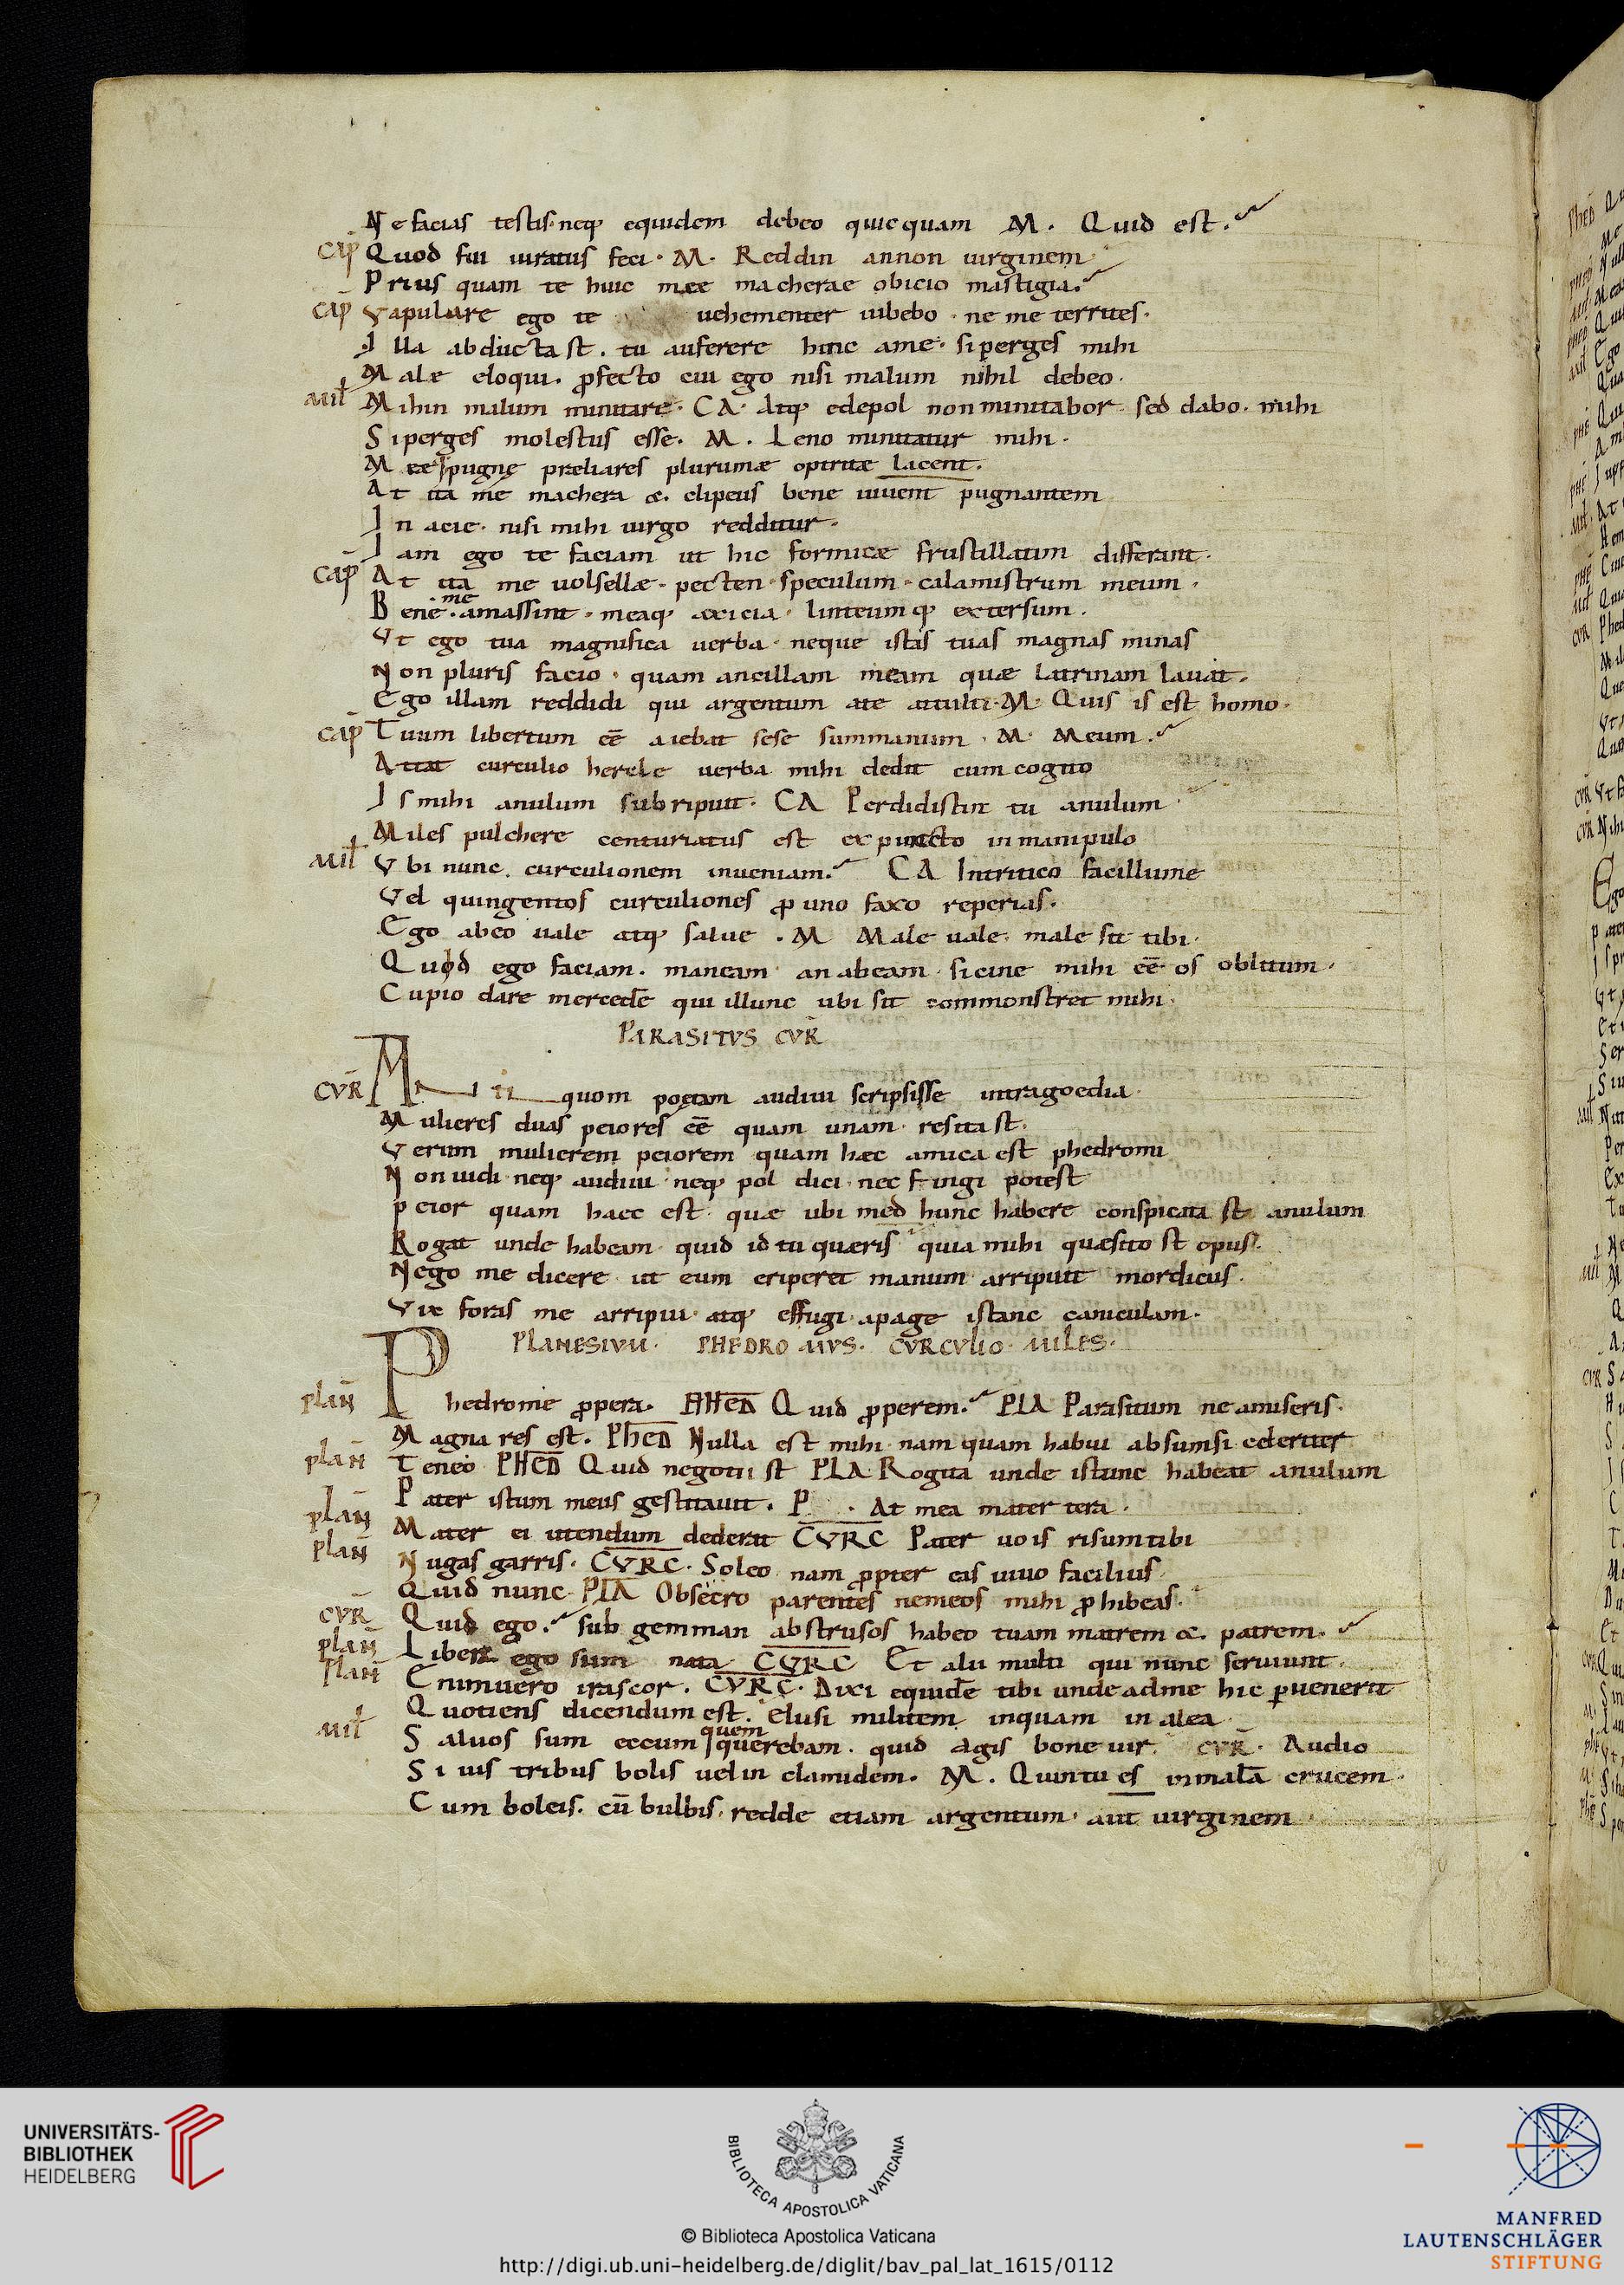 Ne facias testis. neq; equidem debeo quicquam M. Quid est.
CAP̄ Quod fui iuratus feci. M. Reddin annon uirginem
Prius quam te huic meę macherae obicio mastigia.
CAP̄ Vapulare ego te uehementer iubebo. ne me territes.
Illa abductast. tu auferere hinc ame. siperges mihi
Male eloqui. ꝓfecto cui ego nisi malum nihil debeo.
Mil̄ Mihin malum minitare. CA. Atq; edepol nonminitabor sed dabo. mihi
Siperges molestus esse. M. Leno minitatur mihi.
Meę pugnę prẹliares plurimæ optritæ iacent.
At ita me machera &. clipeus bene iuuent pugnantem
In acie. nisi mihi uirgo redditur.
Iam ego te faciam ut hic formicæ frustillatim differant.
CAP̄ At ita me uolsellæ. pecten. speculum. calamistrum meum.
me
Bene. amassint. meaq; axicia. linteumq; extersum.
Vt ego tua magnifica uerba. neque istas tuas magnas minas
Non pluris facio. quam ancillam meam quæ latrinam lauat.
Ego illam reddidi qui argentum ate attulit. M. Quis is est homo.
CAP̄ Tuum libertum eē aiebat sese summanum. M. Meum.
Attat curculio hercle uerba mihi dedit cum cogito
Is mihi anulum subripuit. CA Perdidistin tu anulum
Miles pulchere centuriatus est expuncto inmanipulo
Mil̄ Vbi nunc. curculionem inueniam. CA Intritico facillume
Vel quingentos curculiones ꝓ uno faxo reperias.
Ego abeo uale atq; salue. M Male uale. male sit tibi.
Quod ego faciam. maneam an abeam. sicine mihi eē os oblitum.
Cupio dare mercedē qui illunc ubi sit commonstret mihi.
PARASITVS CVR̄
CVR̄ Antiquom poetam audiui scripsisse intragoedia.
Mulieres duas peiores eē quam unam. resitast.
Verum mulierem peiorem quam hæc amica est phedromi
Non uidi. neq; audiui. neq; pol dici. nec fingi potest
peior quam haec est. quæ ubi med hunc habere conspicata st anulum
Rogat unde habeam. quid id tu quæris quia mihi quæsito st opus.
Nego me dicere. ut eum eriperet manum arripuit mordicus.
Vix foras me arripui. atq; effugi. apage istanc caniculam.
PLANESIVM. PHEDROMVS. CVRCVLIO. MILES.
plāN Phedrome ꝓpera. PHED Quid ꝓperem. PLA Parasitum ne amiseris.
Magna res est. PhED Nulla est mihi. nam quam habui absumsi celeriter
plāN Teneo PHED Quid negotii st PLA. Rogita unde istunc habeat anulum
Pater istum meus gestitauit. P . At mea mater tera.
plāN Mater ei utendum dederat CVRC Pater uois risumtibi
plāN Nugas garris. CVRC. Soleo nam ꝓpter eas uiuo facilius.
Quid nunc. PLA Obsecro parentes nemeos mihi ꝓhibeas.
CVR̄ Quid ego. sub gemman abstrusos habeo tuam matrem &. patrem.
plāN Libera ego sum nata CVRC Et alii multi qui nunc seruiunt.
PlāN Enimuero irascor. CVRC. Dixi equidē tibi undeadme hic ꝑuenerit
Quotiens dicendum est. elusi militem inquam in alea
quem
Mil̄ Saluos sum eccum querebam. quid agis bone uir. CVR̄. Audio
Si uis tribus bolis uelin clamidem. M. Quintu es inmalā crucem.
Cum boleis. cū bulbis. redde etiam argentum. aut uirginem
UNIVERSITÄTS-
BIBLIOTHEK
HEIDELBERG
BIBLIOTECA APOSTOLICA VATICANA
© Biblioteca Apostolica Vaticana
http://digi.ub.uni-heidelberg.de/diglit/bav_pal_lat_1615/0112
MANFRED
LAUTENSCHLÄGER
STIFTUNG